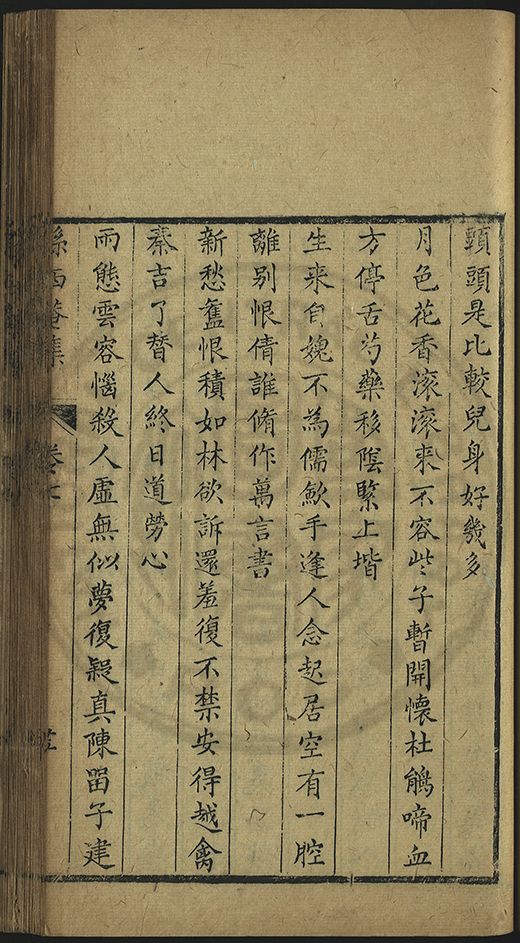 頭是比較兒身好幾多
月色花香滚滚来不容些子暫開懷杜鵑啼血
方停舌芍藥移陰緊上堦
生来負媿不為儒歛手逢人念起居空有一腔
離别恨倩誰脩作萬言書
新愁舊恨積如林欲訴還羞復不禁安得越禽
秦吉了替人終日道勞心
雨態雲容惱殺人虛無似夢復疑真陳畱子建
孫西菴集 卷七